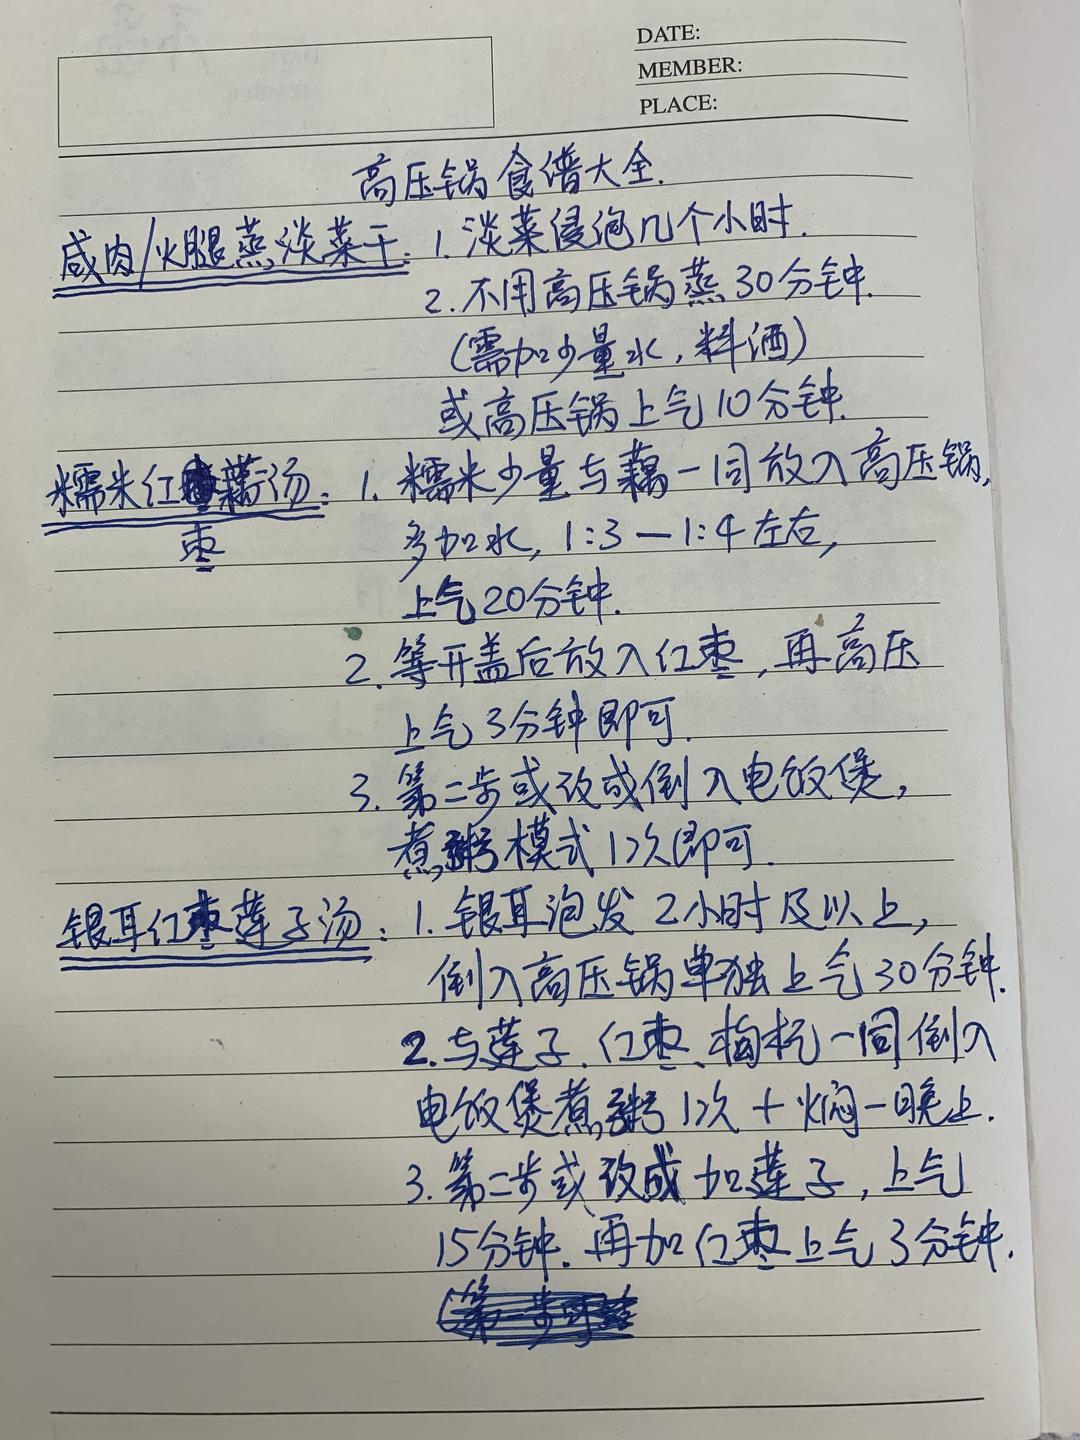 DATE:
MEMBER:
PLACE:
高压锅食谱大全.
咸肉/火腿蒸淡菜干: 1. 淡菜浸泡几个小时.
2. 不用高压锅蒸30分钟.
(需加少量水, 料酒)
或高压锅上气10分钟.
糯米红枣藕汤: 1. 糯米少量与藕一同放入高压锅,
多加水, 1:3—1:4左右,
上气20分钟.
2. 等开盖后放入红枣, 再高压
上气3分钟即可.
3. 第二步或改或倒入电饭煲,
煮粥模式1次即可.
银耳红枣莲子汤: 1. 银耳泡发2小时及以上,
倒入高压锅单独上气30分钟.
2. 与莲子、红枣、枸杞一同倒入
电饭煲煮粥1次+焖一晚上.
3. 第二步或改成加莲子, 上气
15分钟. 再加红枣上气3分钟.